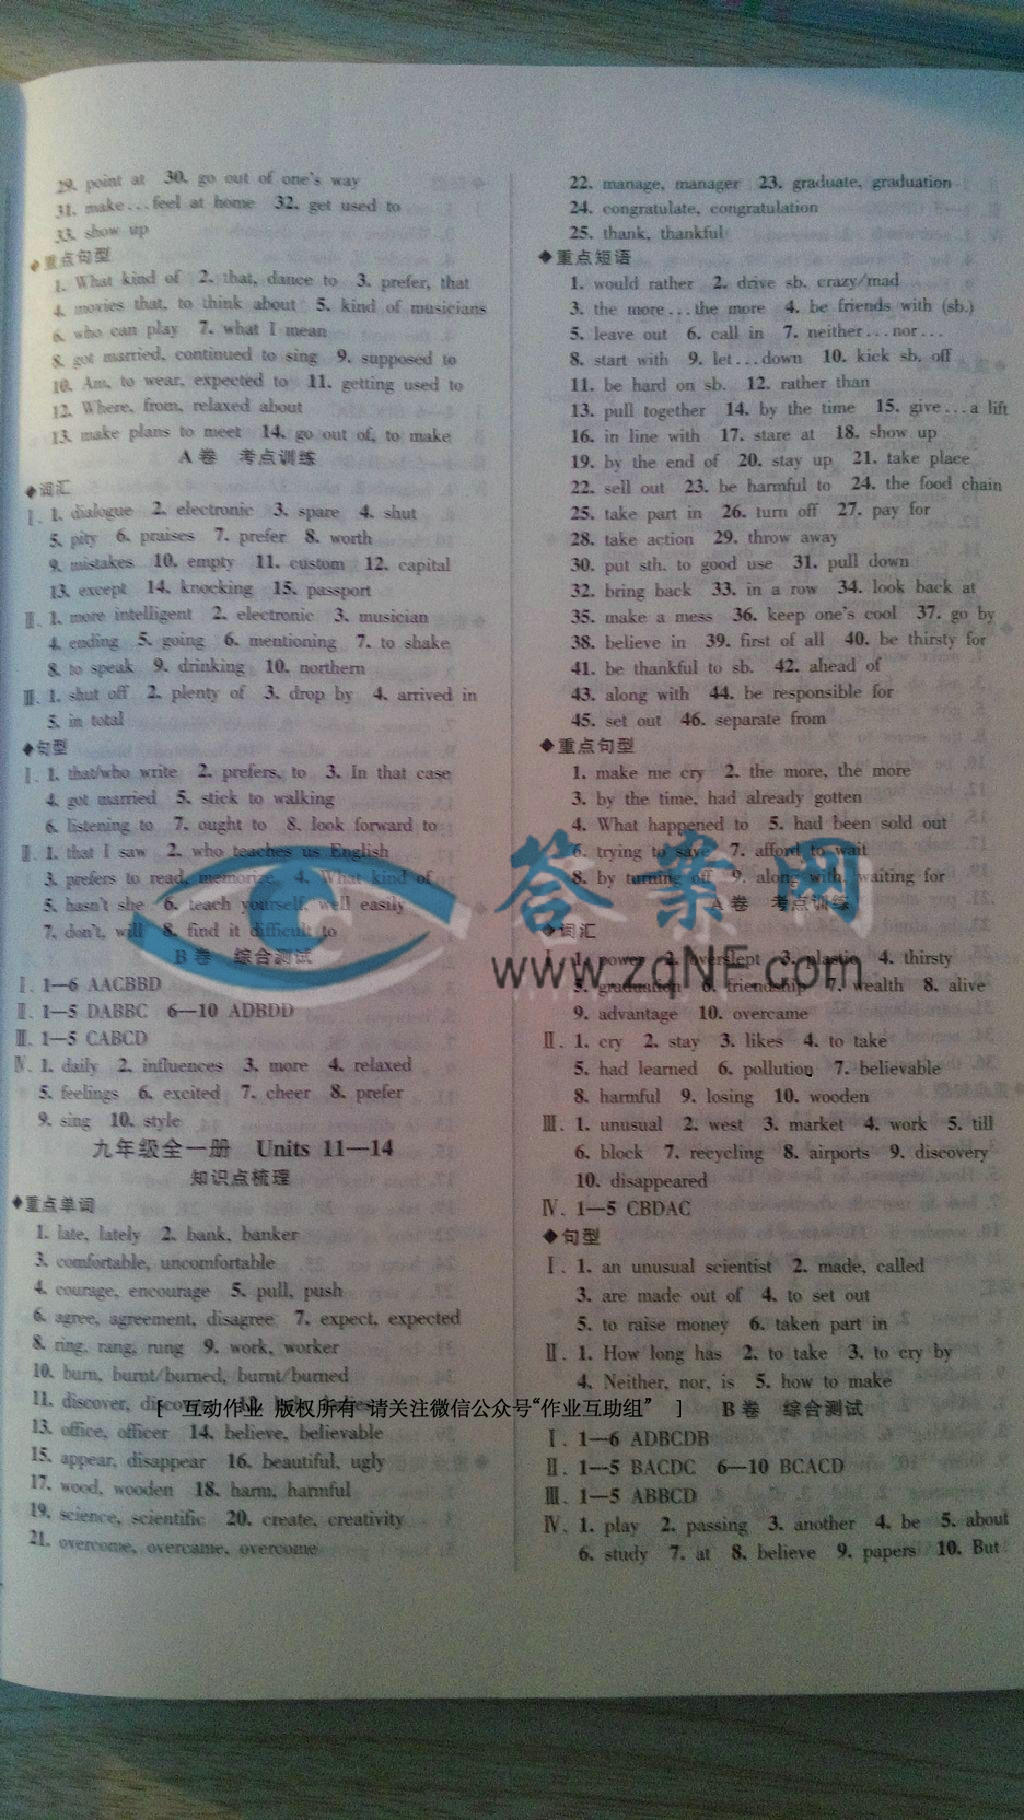 29. point at 30. go out of one's way
31. make…feel at home 32. get used to
33. show up
◆重点句型
1. What kind of 2. that, dance to 3. prefer, that
4. movies that, to think about 5. kind of musicians
6. who can play 7. what I mean
8. got married, continued to sing 9. supposed to
10. Am, to wear, expected to 11. getting used to
12. Where, from, relaxed about
13. make plans to meet 14. go out of, to make
A卷 考点训练
◆词汇
Ⅰ. 1. dialogue 2. electronic 3. spare 4. shut
5. pity 6. praises 7. prefer 8. worth
9. mistakes 10. empty 11. custom 12. capital
13. except 14. knocking 15. passport
Ⅱ. 1. more intelligent 2. electronic 3. musician
4. ending 5. going 6. mentioning 7. to shake
8. to speak 9. drinking 10. northern
Ⅲ. 1. shut off 2. plenty of 3. drop by 4. arrived in
5. in total
◆句型
Ⅰ. 1. that/who write 2. prefers, to 3. In that case
4. got married 5. stick to walking
6. listening to 7. ought to 8. look forward to
Ⅱ. 1. that I saw 2. who teaches us English
3. prefers to read, memorize 4. What kind of
5. hasn't she 6. teach yourself, well easily
7. don't, will 8. find it difficult to
B卷 综合测试
Ⅰ. 1—6 AACBBD
Ⅱ. 1—5 DABBC 6—10 ADBDD
Ⅲ. 1—5 CABCD
Ⅳ. 1. daily 2. influences 3. more 4. relaxed
5. feelings 6. excited 7. cheer 8. prefer
9. sing 10. style
九年级全一册 Units 11—14
知识点梳理
◆重点单词
1. late, lately 2. bank, banker
3. comfortable, uncomfortable
4. courage, encourage 5. pull, push
6. agree, agreement, disagree 7. expect, expected
8. ring, rang, rung 9. work, worker
10. burn, burnt/burned, burnt/burned
11. discover,
[ 互动作业 版权所有 请关注微信公众号“作业互助组” ]
13. office, officer 14. believe, believable
15. appear, disappear 16. beautiful, ugly
17. wood, wooden 18. harm, harmful
19. science, scientific 20. create, creativity
21. overcome, overcame, overcome
22. manage, manager 23. graduate, graduation
24. congratulate, congratulation
25. thank, thankful
◆重点短语
1. would rather 2. drive sb. crazy/mad
3. the more…the more 4. be friends with (sb.)
5. leave out 6. call in 7. neither…nor…
8. start with 9. let…down 10. kick sb. off
11. be hard on sb. 12. rather than
13. pull together 14. by the time 15. give…a lift
16. in line with 17. stare at 18. show up
19. by the end of 20. stay up 21. take place
22. sell out 23. be harmful to 24. the food chain
25. take part in 26. turn off 27. pay for
28. take action 29. throw away
30. put sth. to good use 31. pull down
32. bring back 33. in a row 34. look back at
35. make a mess 36. keep one's cool 37. go by
38. believe in 39. first of all 40. be thirsty for
41. be thankful to sb. 42. ahead of
43. along with 44. be responsible for
45. set out 46. separate from
◆重点句型
1. make me cry 2. the more, the more
3. by the time, had already gotten
4. What happened to 5. had been sold out
6. trying to save 7. afford to wait
8. by turning off 9. along with, waiting for
A卷 考点训练
◆词汇
答案网
www.zqNF.com
Ⅰ. 1. power 2. overslept 3. plastic 4. thirsty
5. graduation 6. friendship 7. wealth 8. alive
9. advantage 10. overcame
Ⅱ. 1. cry 2. stay 3. likes 4. to take
5. had learned 6. pollution 7. believable
8. harmful 9. losing 10. wooden
Ⅲ. 1. unusual 2. west 3. market 4. work 5. till
6. block 7. recycling 8. airports 9. discovery
10. disappeared
Ⅳ. 1—5 CBDAC
◆句型
Ⅰ. 1. an unusual scientist 2. made, called
3. are made out of 4. to set out
5. to raise money 6. taken part in
Ⅱ. 1. How long has 2. to take 3. to cry by
4. Neither, nor, is 5. how to make
B卷 综合测试
Ⅰ. 1—6 ADBCDB
Ⅱ. 1—5 BACDC 6—10 BCACD
Ⅲ. 1—5 ABBCD
Ⅳ. 1. play 2. passing 3. another 4. be 5. about
6. study 7. at 8. believe 9. papers 10. But